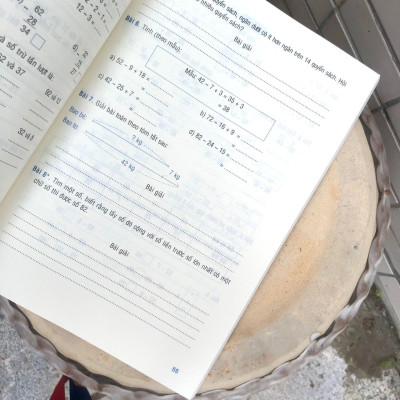 62
28
34
12 - 3
số trừ lần lượt là:
32 và 37
quyển sách, ngăn dưới có ít hơn ngăn trên 14 quyển sách. Hỏi
nhiêu quyển sách?
Bài giải
Bài 6. Tính (theo mẫu):
Mẫu: 42 – 7 + 3 = 35 + 3
= 38
a) 52 – 9 + 18 =
=
b) 72 – 16 + 9 =
=
c) 42 – 25 + 7 =
=
d) 82 – 24 – 15 =
=
Bài 7. Giải bài toán theo tóm tắt sau:
Bao bé:
? kg
7 kg
Bao to:
42 kg
Bài giải
Bài 8*. Tìm một số, biết rằng lấy số đó cộng với số liền trước số lớn nhất có một
chữ số thì được số 82.
Bài giải